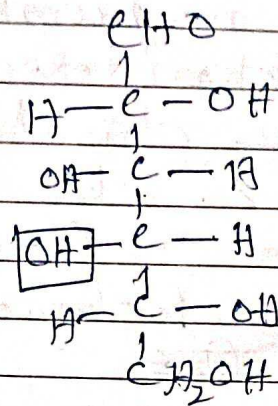 CHO
H—C—OH
OH—C—H
OH—C—H
H—C—OH
CH₂OH